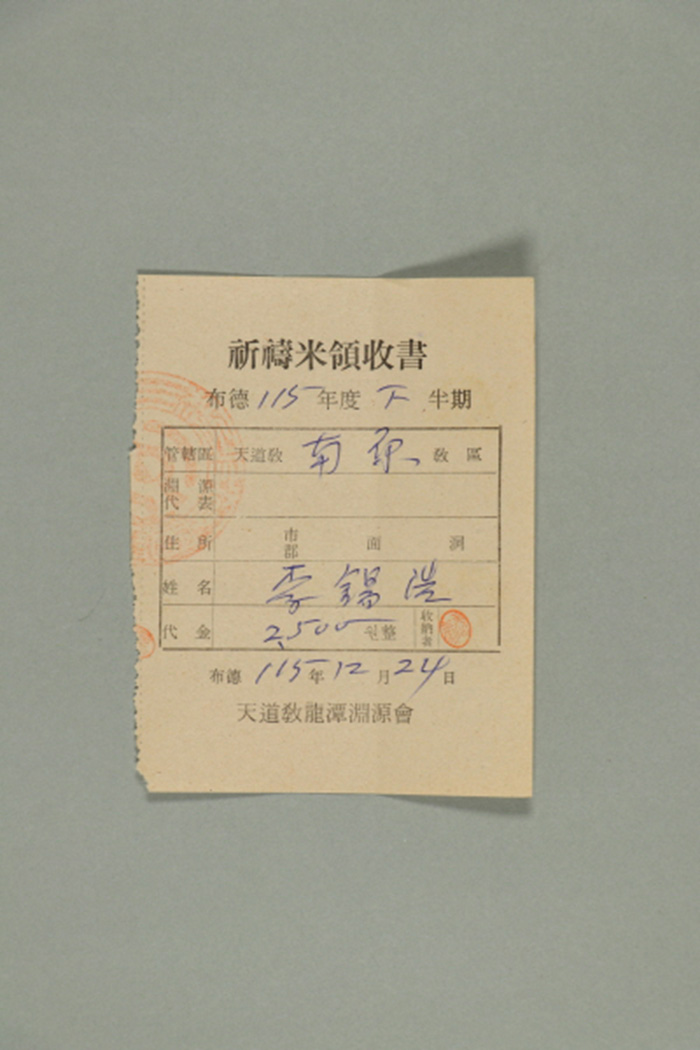 祈禱米領收書
布德 115 年度 下 半期
管轄區 天道敎 南原 敎區
淵源代表
住所 市郡 面 洞
姓名 李錫浩
代金 2,500 원整 收納者
布德 115 年 12 月 24 日
天道敎龍潭淵源會